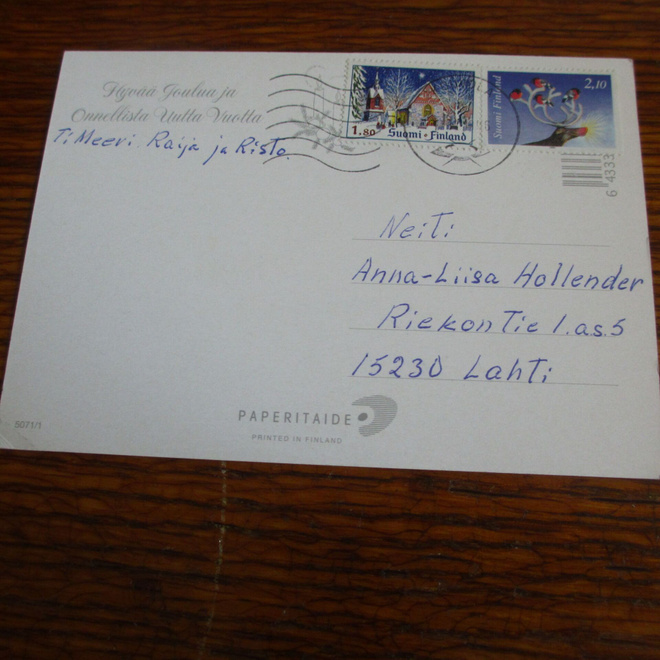 Hyvää Joulua ja
Onnellista Uutta Vuotta
Ti Meeri Raija ja Risto.
1.80 Suomi Finland
Suomi Finland 2,10
6 4333
Neiti
Anna-Liisa Hollender
Riekontie 1.as.5
15230 Lahti
PAPERITAIDE
PRINTED IN FINLAND
5071/1